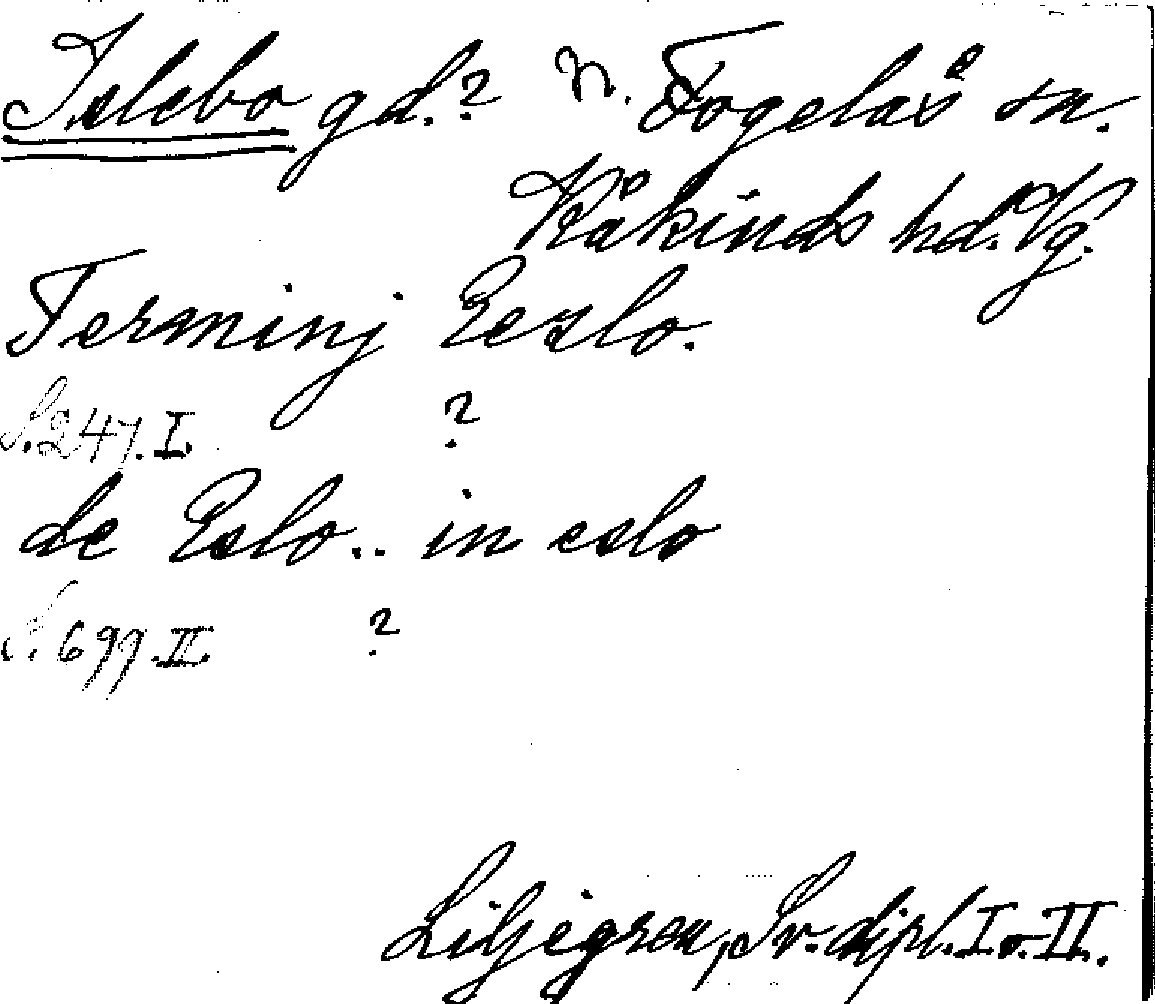 Islebo gd.? N. Fogelås sn.
Kåkinds hd. Vg.
Terminj Eeslo.
S. 247. I. ?
de Eslo.. in eslo
S. 699. II. ?
Liljegren, Sv. dipl. I o. II.